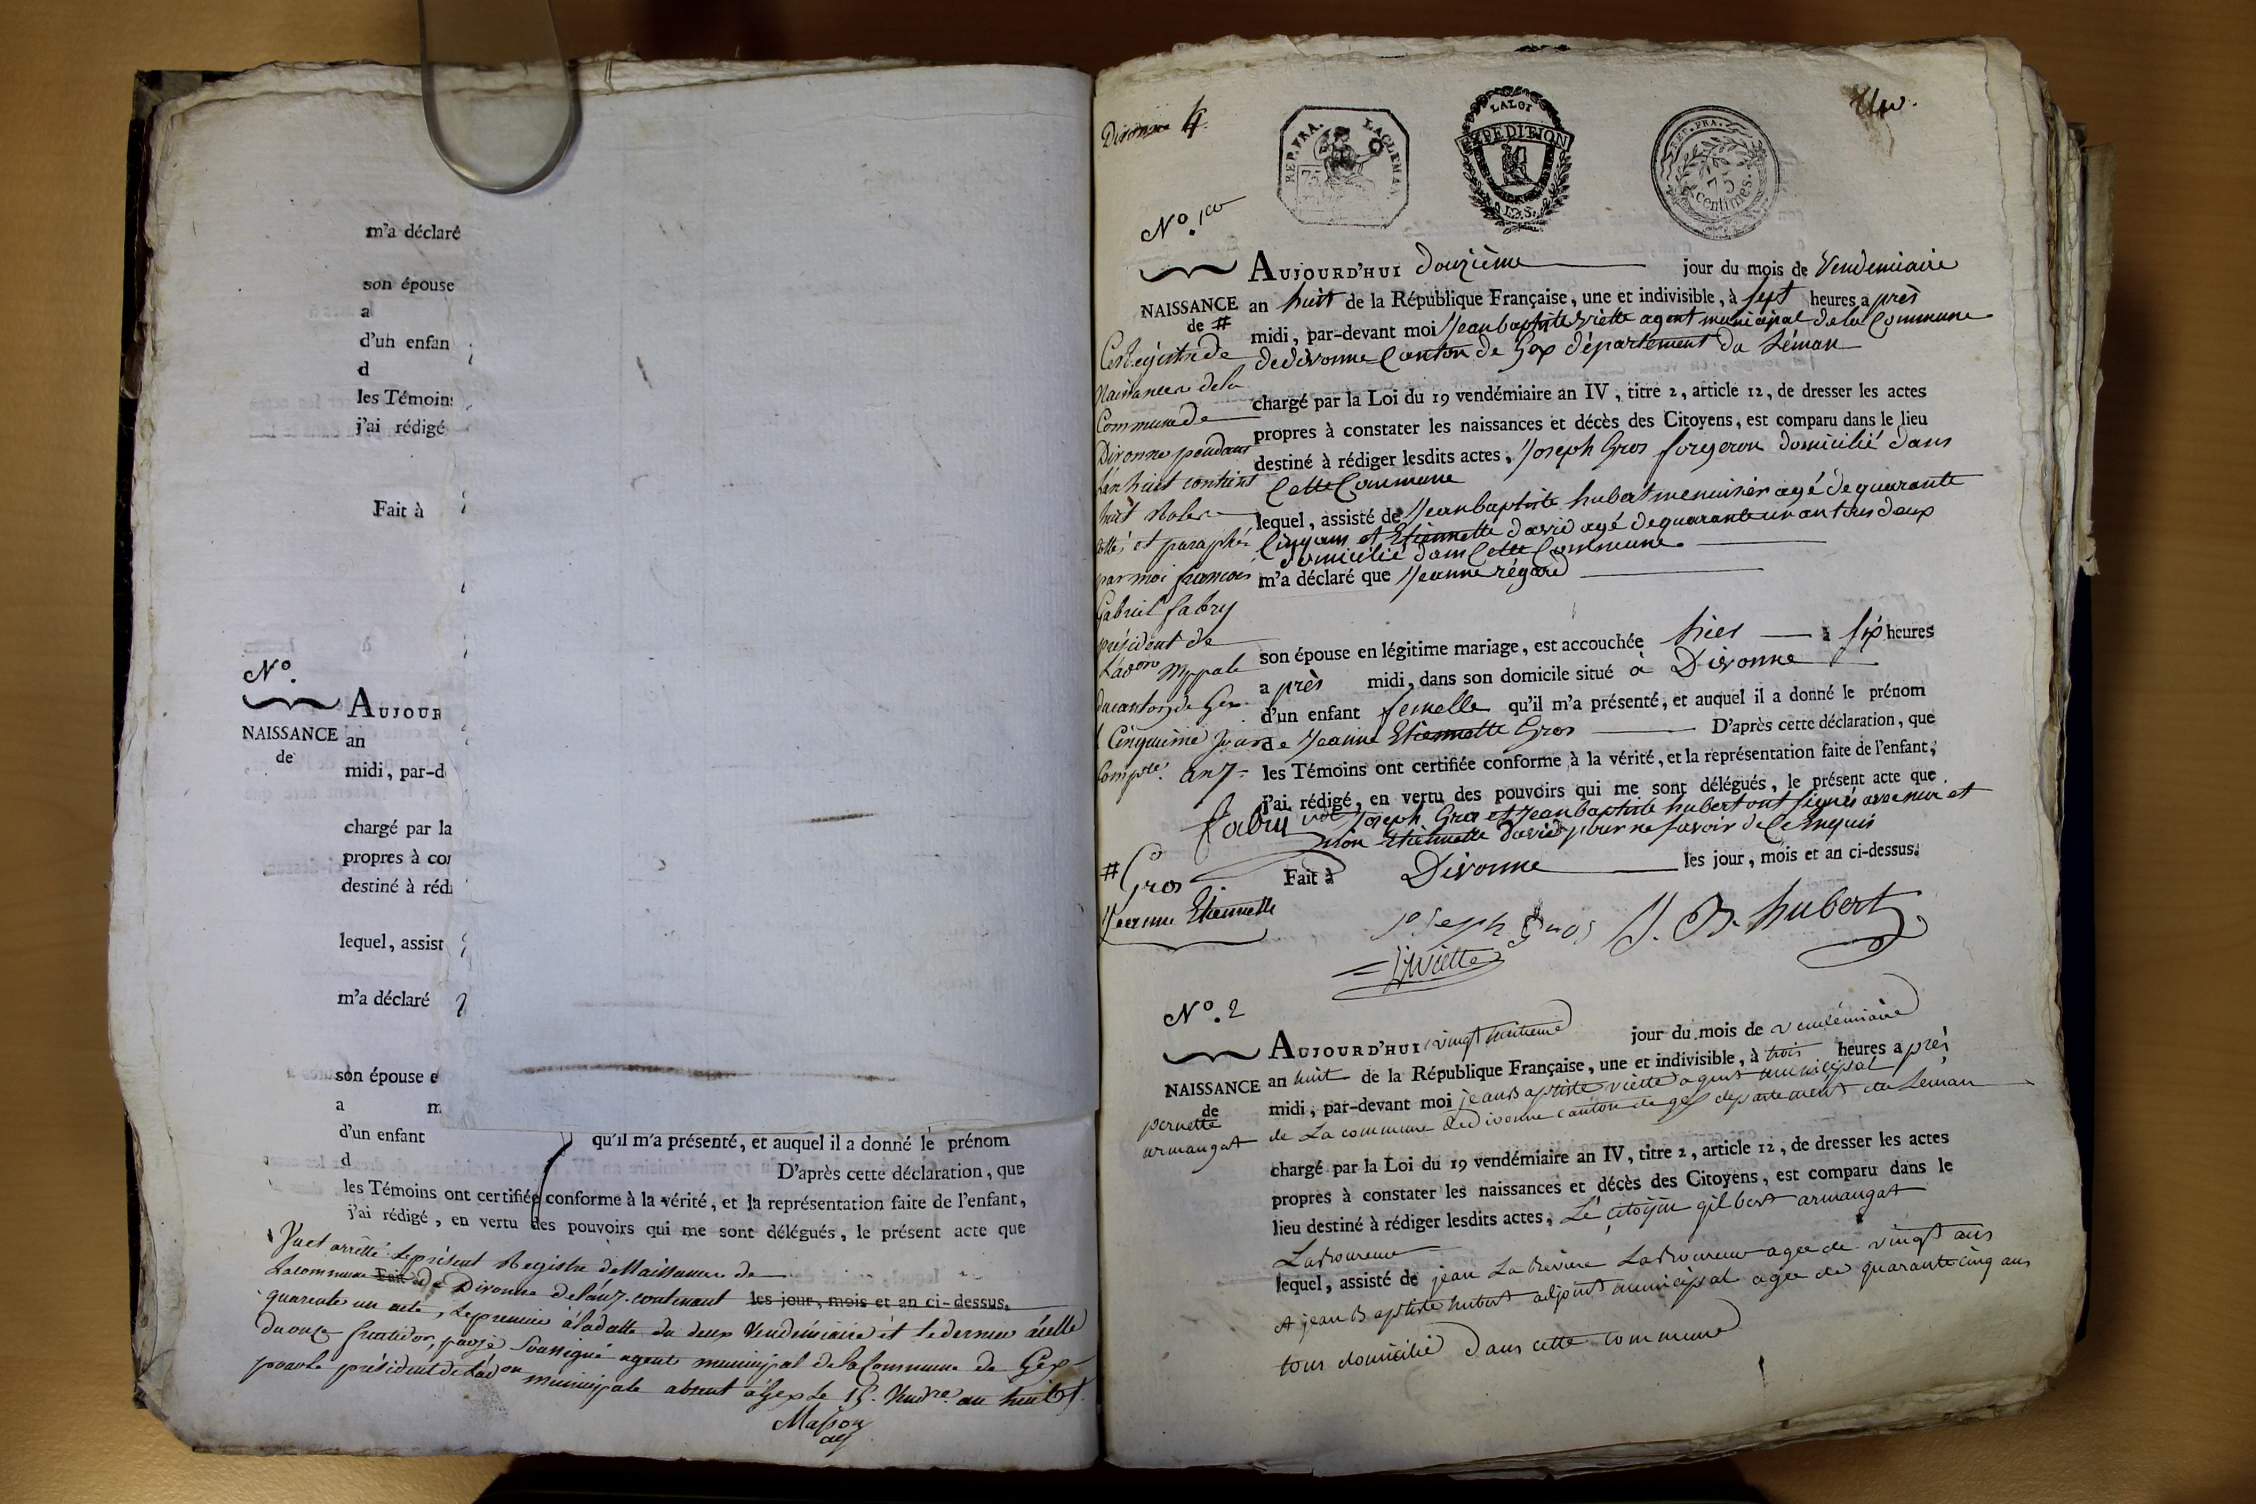 m'a déclaré
son épouse
a
d'un enfan
d
les Témoins
j'ai rédigé
Fait à
N°.
AUJOUR
NAISSANCE an
de
midi, par-d
chargé par la
propres à con
destiné à réd
lequel, assist
m'a déclaré
son épouse e
a m
d'un enfant qu'il m'a présenté, et auquel il a donné le prénom
d D'après cette déclaration, que
les Témoins ont certifiée conforme à la vérité, et la représentation faite de l'enfant,
j'ai rédigé, en vertu des pouvoirs qui me sont délégués, le présent acte que
Vu et arretté le présent Registre de Naissance de
la commune de Divonne de l'an 7. contenant les jour, mois et an ci-dessus.
quarente un acte, le premier à la datte du deux Vendémiaire et le dernier à celle
du onze fructidor, par je soussigné agent municipal de la Commune de Gex
pour le président de l'adon municipale absent à Gex le 15. Vendre. an huit
Masson
agt
Divonne 4
REP. FRA.
75
LA LOI
EXPEDITION
REP. FRA.
75
centimes.
Un.
N°. 1er
AUJOURD'HUI douzième jour du mois de Vendemiaire
NAISSANCE an huit de la République Française, une et indivisible, à sept heures après
de #
midi, par-devant moi Jean baptiste Viette agent municipal de la Commune
de divonne Canton de Gex département du Léman
chargé par la Loi du 19 vendémiaire an IV, titre 2, article 12, de dresser les actes
propres à constater les naissances et décès des Citoyens, est comparu dans le lieu
destiné à rédiger lesdits actes, Joseph Gros forgeron domicilié dans
Cette Commune
lequel, assisté de Jean baptiste hubert menuisier agé de quarante
Cinq ans et Etiennette david agé de quarante un an tous deux
domicilié dans Cette Commune
m'a déclaré que Jeanne régard
son épouse en légitime mariage, est accouchée hier à six heures
après midi, dans son domicile situé à Divonne
d'un enfant femelle qu'il m'a présenté, et auquel il a donné le prénom
de Jeanne Etiennette Gros D'après cette déclaration, que
les Témoins ont certifiée conforme à la vérité, et la représentation faite de l'enfant,
j'ai rédigé, en vertu des pouvoirs qui me sont délégués, le présent acte que
Joseph Gros et Jean baptiste hubert ont signés avec moi et
non Etiennette david pour ne savoir de Ce requis
Fait à Divonne les jour, mois et an ci-dessus.
Ce Registre de
Naissance de la
Commune de
Divonne pendant
l'an huit contient
huit Roles
cottés et paraphé
par moi francois
Gabriel fabry
président de
L'adon Mppale
du canton de Gex
l Cinquieme Jour
Complé. an 7
fabry
# Gros
Jeanne Etiennette
Joseph Gros J. B. hubert
Viette
N°. 2
AUJOURD'HUI vingt huitieme jour du mois de vendémiaire
NAISSANCE an huit de la République Française, une et indivisible, à trois heures après
de
pernette
armangat
midi, par-devant moi jean Baptiste viette agent municipal
de La commune de divonne canton de gex departement du Leman
chargé par la Loi du 19 vendémiaire an IV, titre 2, article 12, de dresser les actes
propres à constater les naissances et décès des Citoyens, est comparu dans le
lieu destiné à rédiger lesdits actes, Le citoyin gilbert armangat
Laboureur
lequel, assisté de jean La Riviere Laboureur agee de vingt ans
et jean Baptiste hubert adjoint municipal agee de quarante cinq ans
tous domicilié dans cette commune